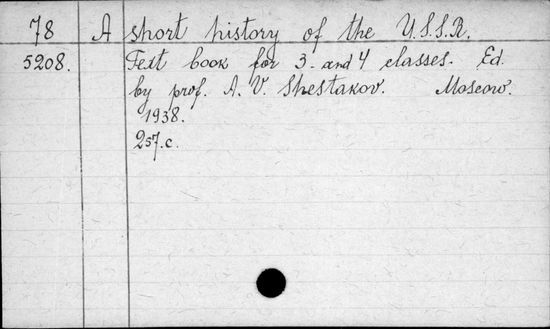 78 A short history of the U.S.S.R.
5208. Text book for 3- and 4 classes. Ed.
by prof. A. V. Shestakov. Moscow.
1938.
257.c.